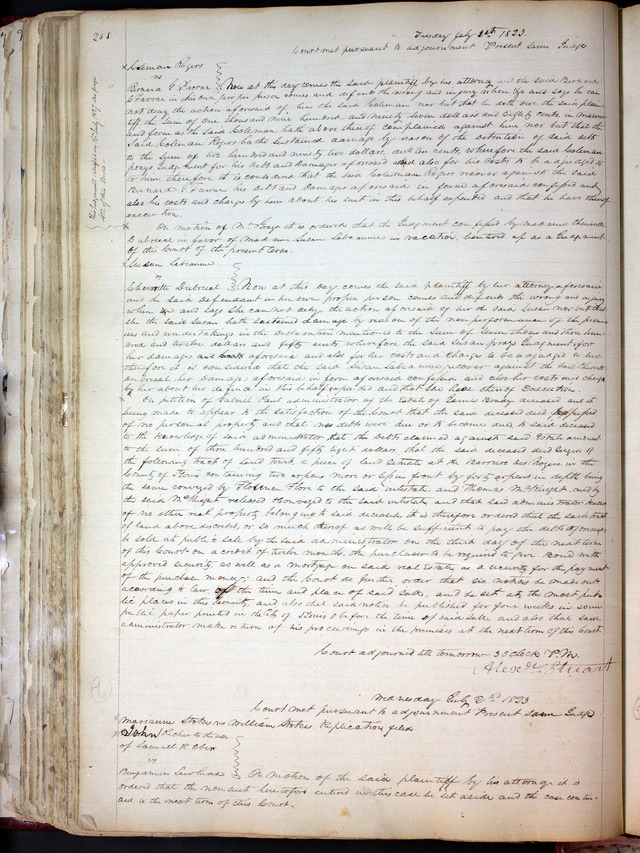 251
Tuesday July 1st 1823.
Court met pursuant to adjournment Present same Judge
Coleman Rogers
vs
Bernard G Farrar Now at this day comes the said plaintiff by his attorney and the said Bernard
G Farrar in his own proper person comes and defends the wrong and injury when &c and says he can
not deny the action aforesaid of him the said Coleman nor but that he doth owe the said plain
tiff the sum of One thousand nine hundred and ninety seven dollars and eighty cents in manner
and form as the said Coleman hath above thereof complained against him, nor but that the
said Coleman Rogers hath sustained damage by reason of the detention of said debt
to the sum of two hundred and ninety two dollars and ten cents. Wherefore the said Coleman
prays Judgment for his debt and Damages aforesaid and also for his Costs to be adjudged to
him, therefore it is considered that the said Coleman Rogers recover against the said
Bernard G Farrar his debt and Damages aforesaid in form aforesaid confessed and
also his costs and charges by him about his suit in this behalf expended and that he have thereof
execution.
On motion of Mr it is ordered that the Judgment confessed by madame Chevrette
Dubreuil in favor of Madam Susan Labeaume in vacation, be entered up as a Judgment
of this Court of the present term.
Susan Labeaume
vs
Chevrette Dubreuil Now at this Day comes the said plaintiff by her attorney aforesaid
and the said Defendant in her own proper person comes and defends the wrong and injury
when &c and says she can not deny the action aforesaid of her the said Susan nor but that
she the said Susan hath sustained damage by reason of the non performance of the promi
ses and undertakings in the Declaration mentioned to the Sum of Seven thousand three hun
dred and twelve dollars and fifty cents, wherefore the said Susan prays Judgment for
her damages aforesaid and also for her costs and charges to be adjudged to her
therefore it is considered that the said Susan Labeaume recover against the said Chevrette
Dubreuil her Damages aforesaid in form aforesaid confessed and also her costs and charges
by her about her suit in this behalf expended and that she have thereof Execution.
On petition of Gabriel Paul administrator of the Estate of Louis deceased and it
being made to appear to the satisfaction of the Court that the said deceased died possessed
of no personal property and that no debts were due or to become due to said deceased
to the knowledge of said administrator that the Debts claimed against said Estate amount
to the sum of three hundred and fifty eight dollars, that the said deceased died seized of
the following tract of Land to wit, a piece of land situate at the Barriere des Noyers in the
County of St Louis containing two arpens more or less in front by forty arpens in depth being
the same conveyed by Florence Flore to the said intestate, and Thomas McKnight and by
the said McKnight released & conveyed to the said intestate and that said administrator knows
of no other real property belonging to said deceased, it is therefore ordered that the said tract
of land above described, or so much thereof as will be sufficient to pay the debts aforesaid
be sold at public sale by the said administrator on the third day of the next term
of this Court on a credit of twelve months, the purchaser to be required to give Bond with
approved security as well as a mortgage on said real Estate, as a security for the payment
of the purchase money; and the Court do further order that six notices be made out
according to law, of the time and place of said sale, and be set up at the most pub
lic places in this County, and also that said notice be published for four weeks in some
public paper printed in the City of St Louis before the time of said sale, and also that said
administrator make return of his proceedings in the premises at the next term of this Court.
Court adjourned till tomorrow 3 oClock P.M.
Alexr. Stuart
Wednesday July 2nd 1823
Court met pursuant to adjournment Present same Judge
Marianne Stokes vs William Stokes Replication filed
John Richardson
of Samuel R Ober
vs
Benjamin On motion of the said plaintiff by his attorney it is
ordered that the nonsuit heretofore entered in this case be set aside and the case contin-
ued to the next term of this Court.